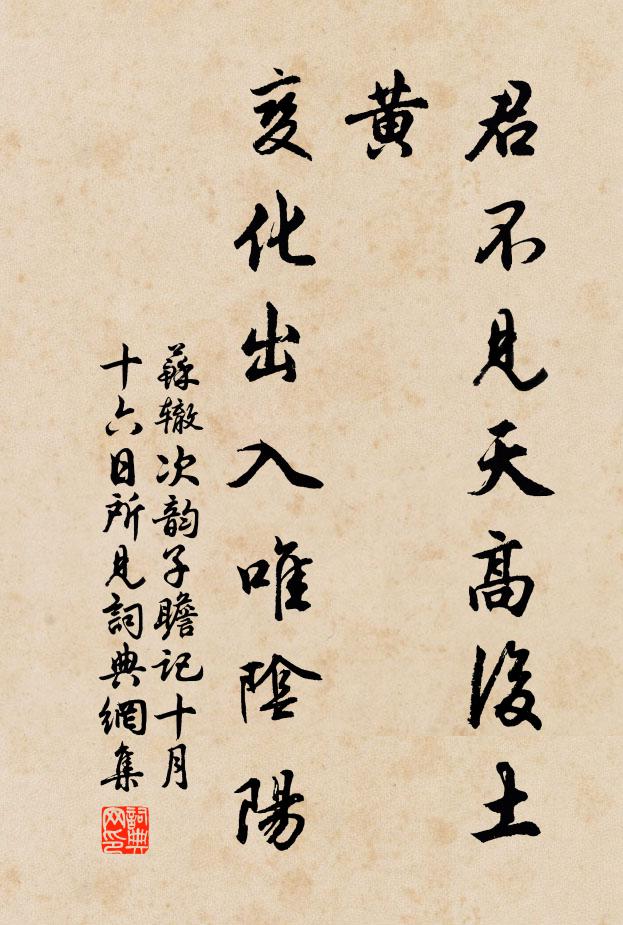 君不見天高後土
黃
变化出入唯陰陽
蘇辙次韵子瞻記十月
十六日所見詞典網集
詞典网印